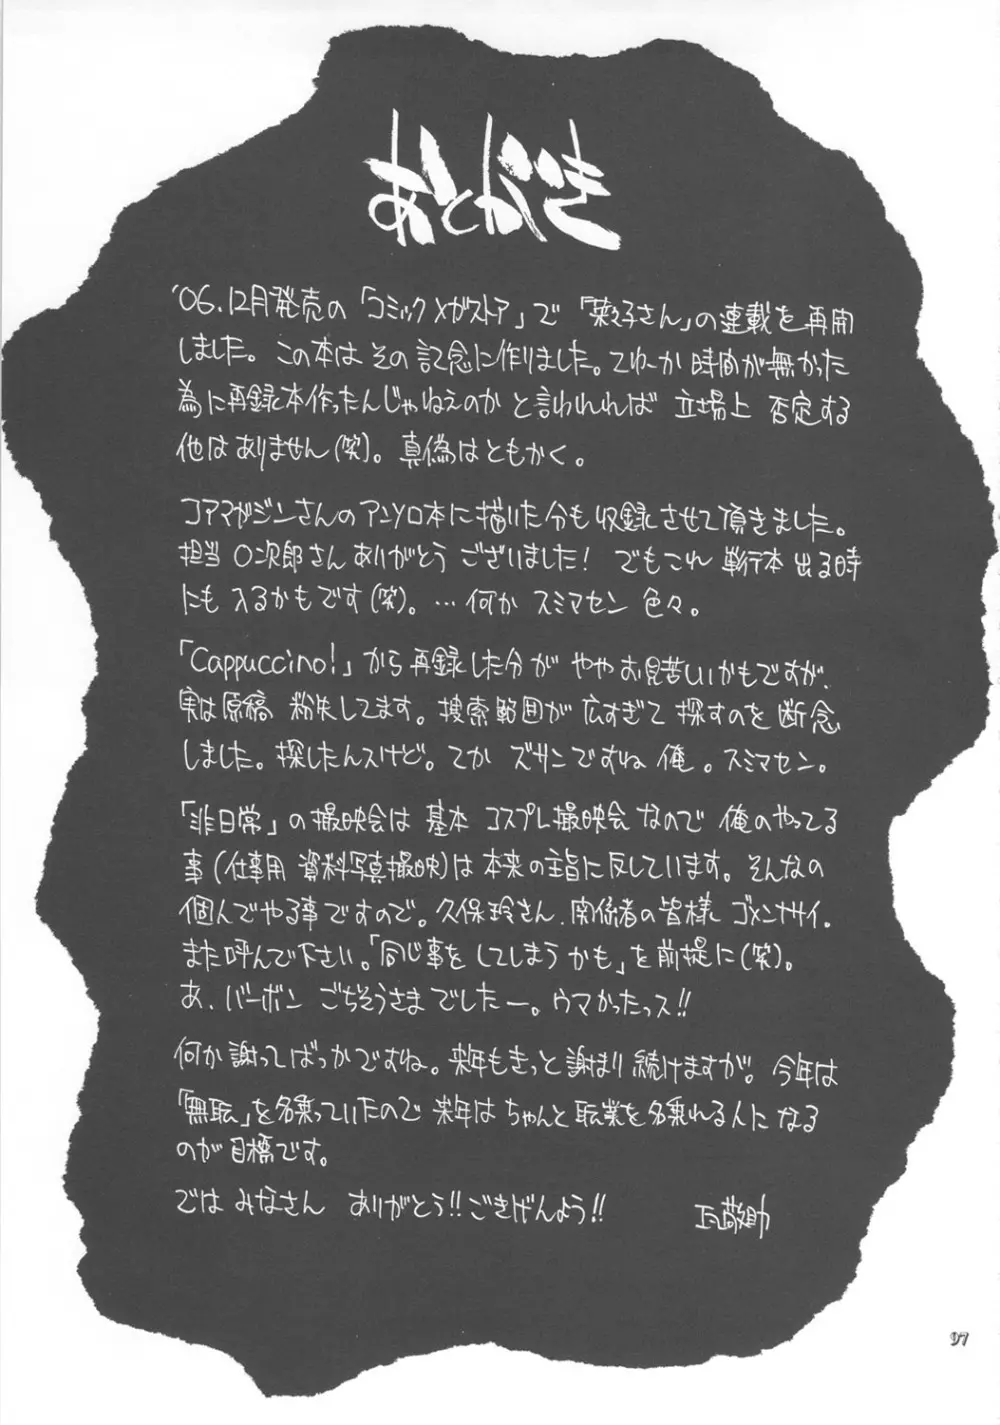 あとがき
'06.12月発売の「コミックメガストア」で「菜々子さん」の連載を再開
しました。この本はその記念に作りました。てゆーか 時間が無かった
為に再録本作ったんじゃねえのか と言われれば 立場上 否定する
他はありません(笑)。真偽はともかく。
コアマガジンさんのアンソロ本に描いた分も収録させて頂きました。
担当〇次郎さんありがとう ございました! でもこれ 単行本 出る時
にも 入るかもです(笑)。…何か スミマセン 色々。
「Cappuccino!」から再録した分が やや お見苦しいかもですが、
実は原稿 紛失してます。捜索範囲が 広すぎて 探すのを 断念
しました。探したんスけど。てか ズサンですね 俺。スミマセン。
「非日常」の撮映会は 基本 コスプレ撮映会 なので 俺のやってる
事(仕事用 資料写真撮映)は 本来の主旨に反しています。そんなの
個人でやる事ですので。久保玲さん、関係者の皆様 ゴメンナサイ。
また呼んで下さい。「同じ事を してしまう かも」を 前提に(笑)。
あ、バーボン ごちそうさま でしたー。ウマかったっス!!
何か謝ってばっかですね。来年もきっと謝まり続けますが。今年は
「無職」を名乗っていたので 来年は ちゃんと 職業を名乗れる人に なる
のが 目標です。
では みなさん ありがとう!! ごきげんよう!!
97